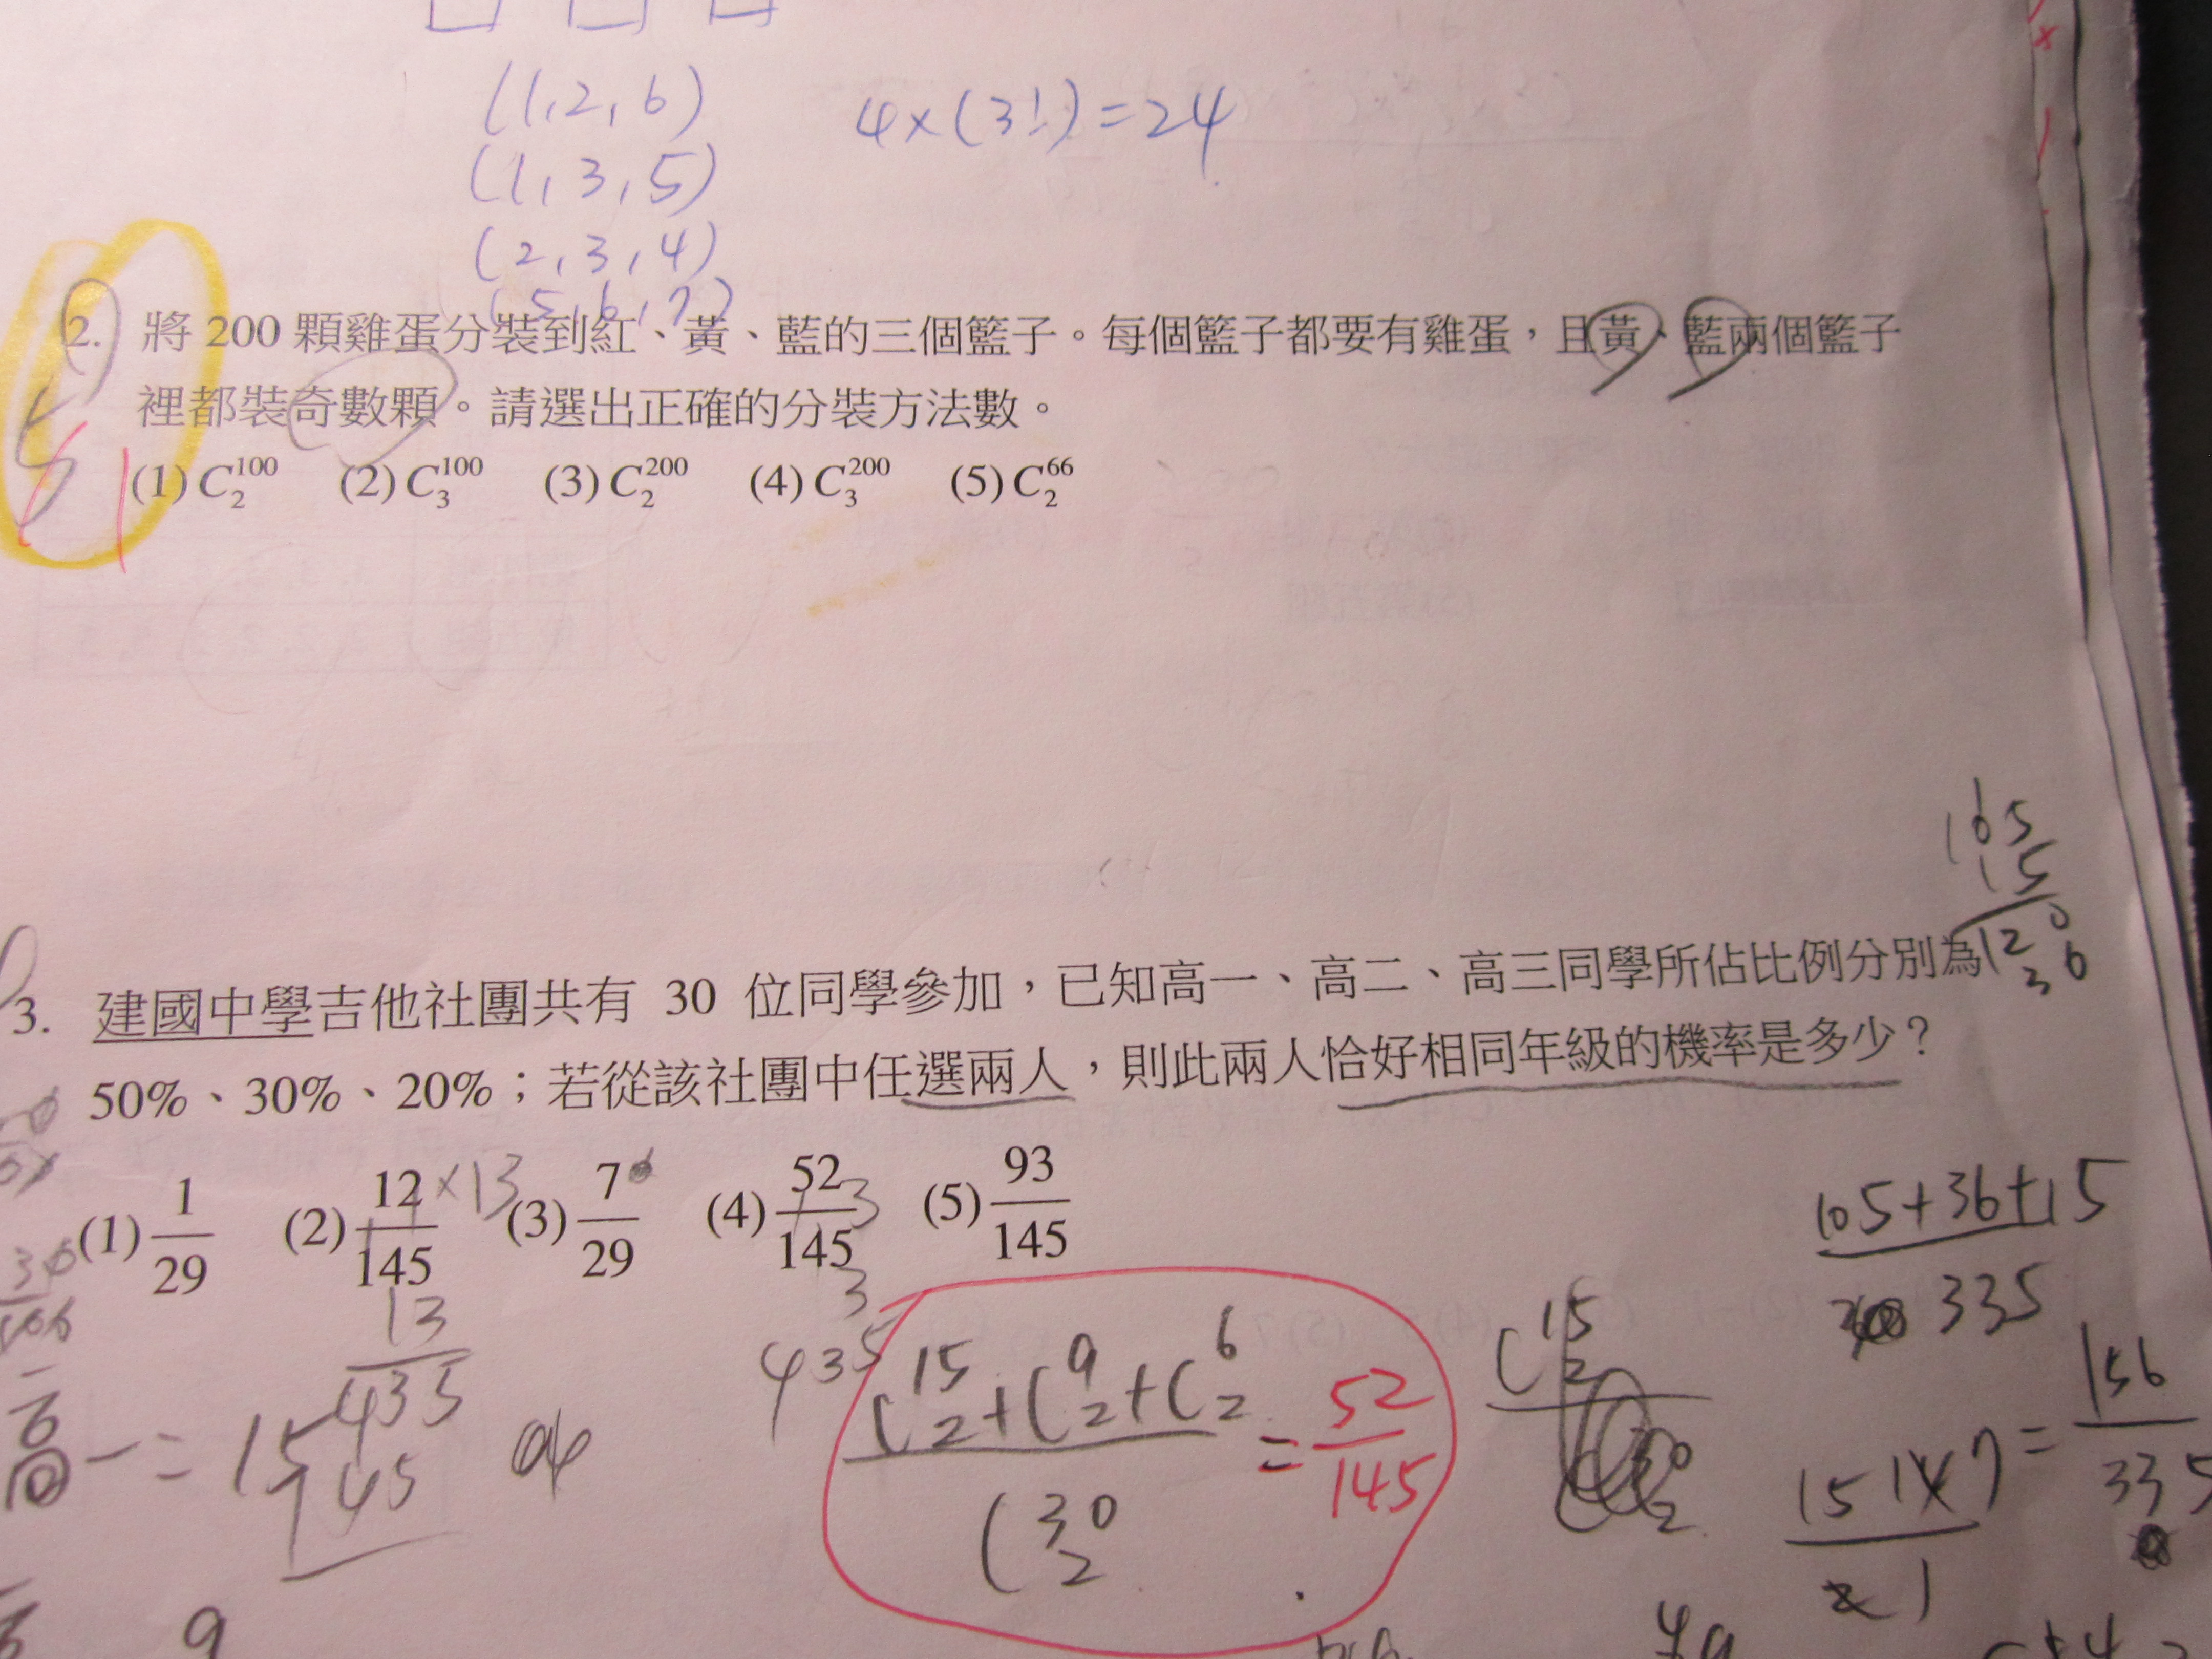 (1,2,6) 4×(3!)=24
(1,3,5)
(2,3,4)
(5,6,7)
2. 將 200 顆雞蛋分裝到紅、黃、藍的三個籃子。每個籃子都要有雞蛋,且黃、藍兩個籃子
裡都裝奇數顆。請選出正確的分裝方法數。
(1) C₂¹⁰⁰ (2) C₃¹⁰⁰ (3) C₂²⁰⁰ (4) C₃²⁰⁰ (5) C₂⁶⁶
105
15
120
36
3. 建國中學吉他社團共有 30 位同學參加,已知高一、高二、高三同學所佔比例分別為
50%、30%、20%;若從該社團中任選兩人,則此兩人恰好相同年級的機率是多少?
(1) 1/29 (2) 12/145 ×13 (3) 7/29 (4) 52/145 (5) 93/145
3
3
13
435
435
145
高一=15
(C₂¹⁵+C₂⁹+C₂⁶)/C₂³⁰ = 52/145
C₂¹⁵
105+36+15
335
=156
335
15 14 7
1
9